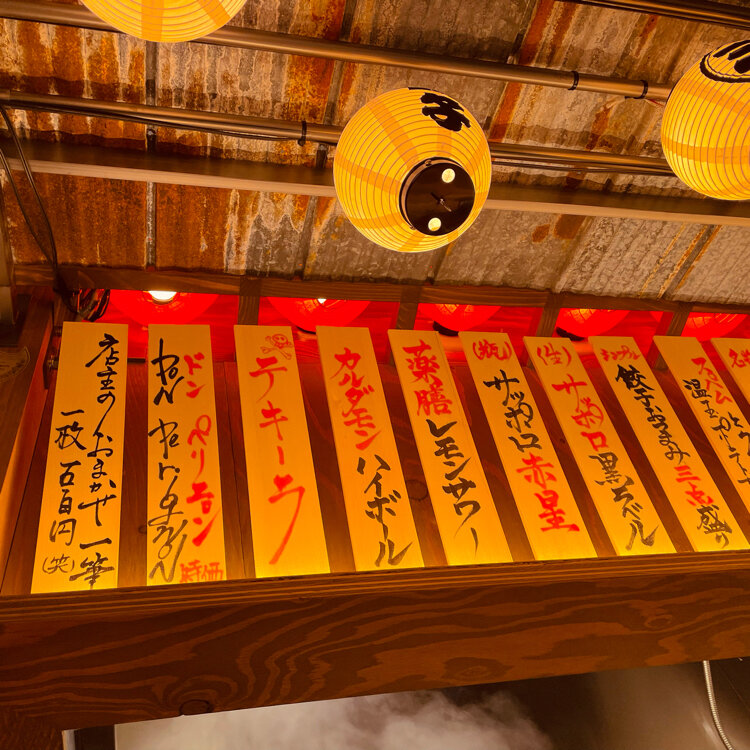 子
スパム
餃子おつまみ三点盛り
(生)
サッポロ黒ラベル
(瓶)
サッポロ赤星
薬膳レモンサワー
カルダモンハイボール
テキーラ
ドンペリニヨン
時価
店主のおまかせ一筆
一枚五百円(笑)